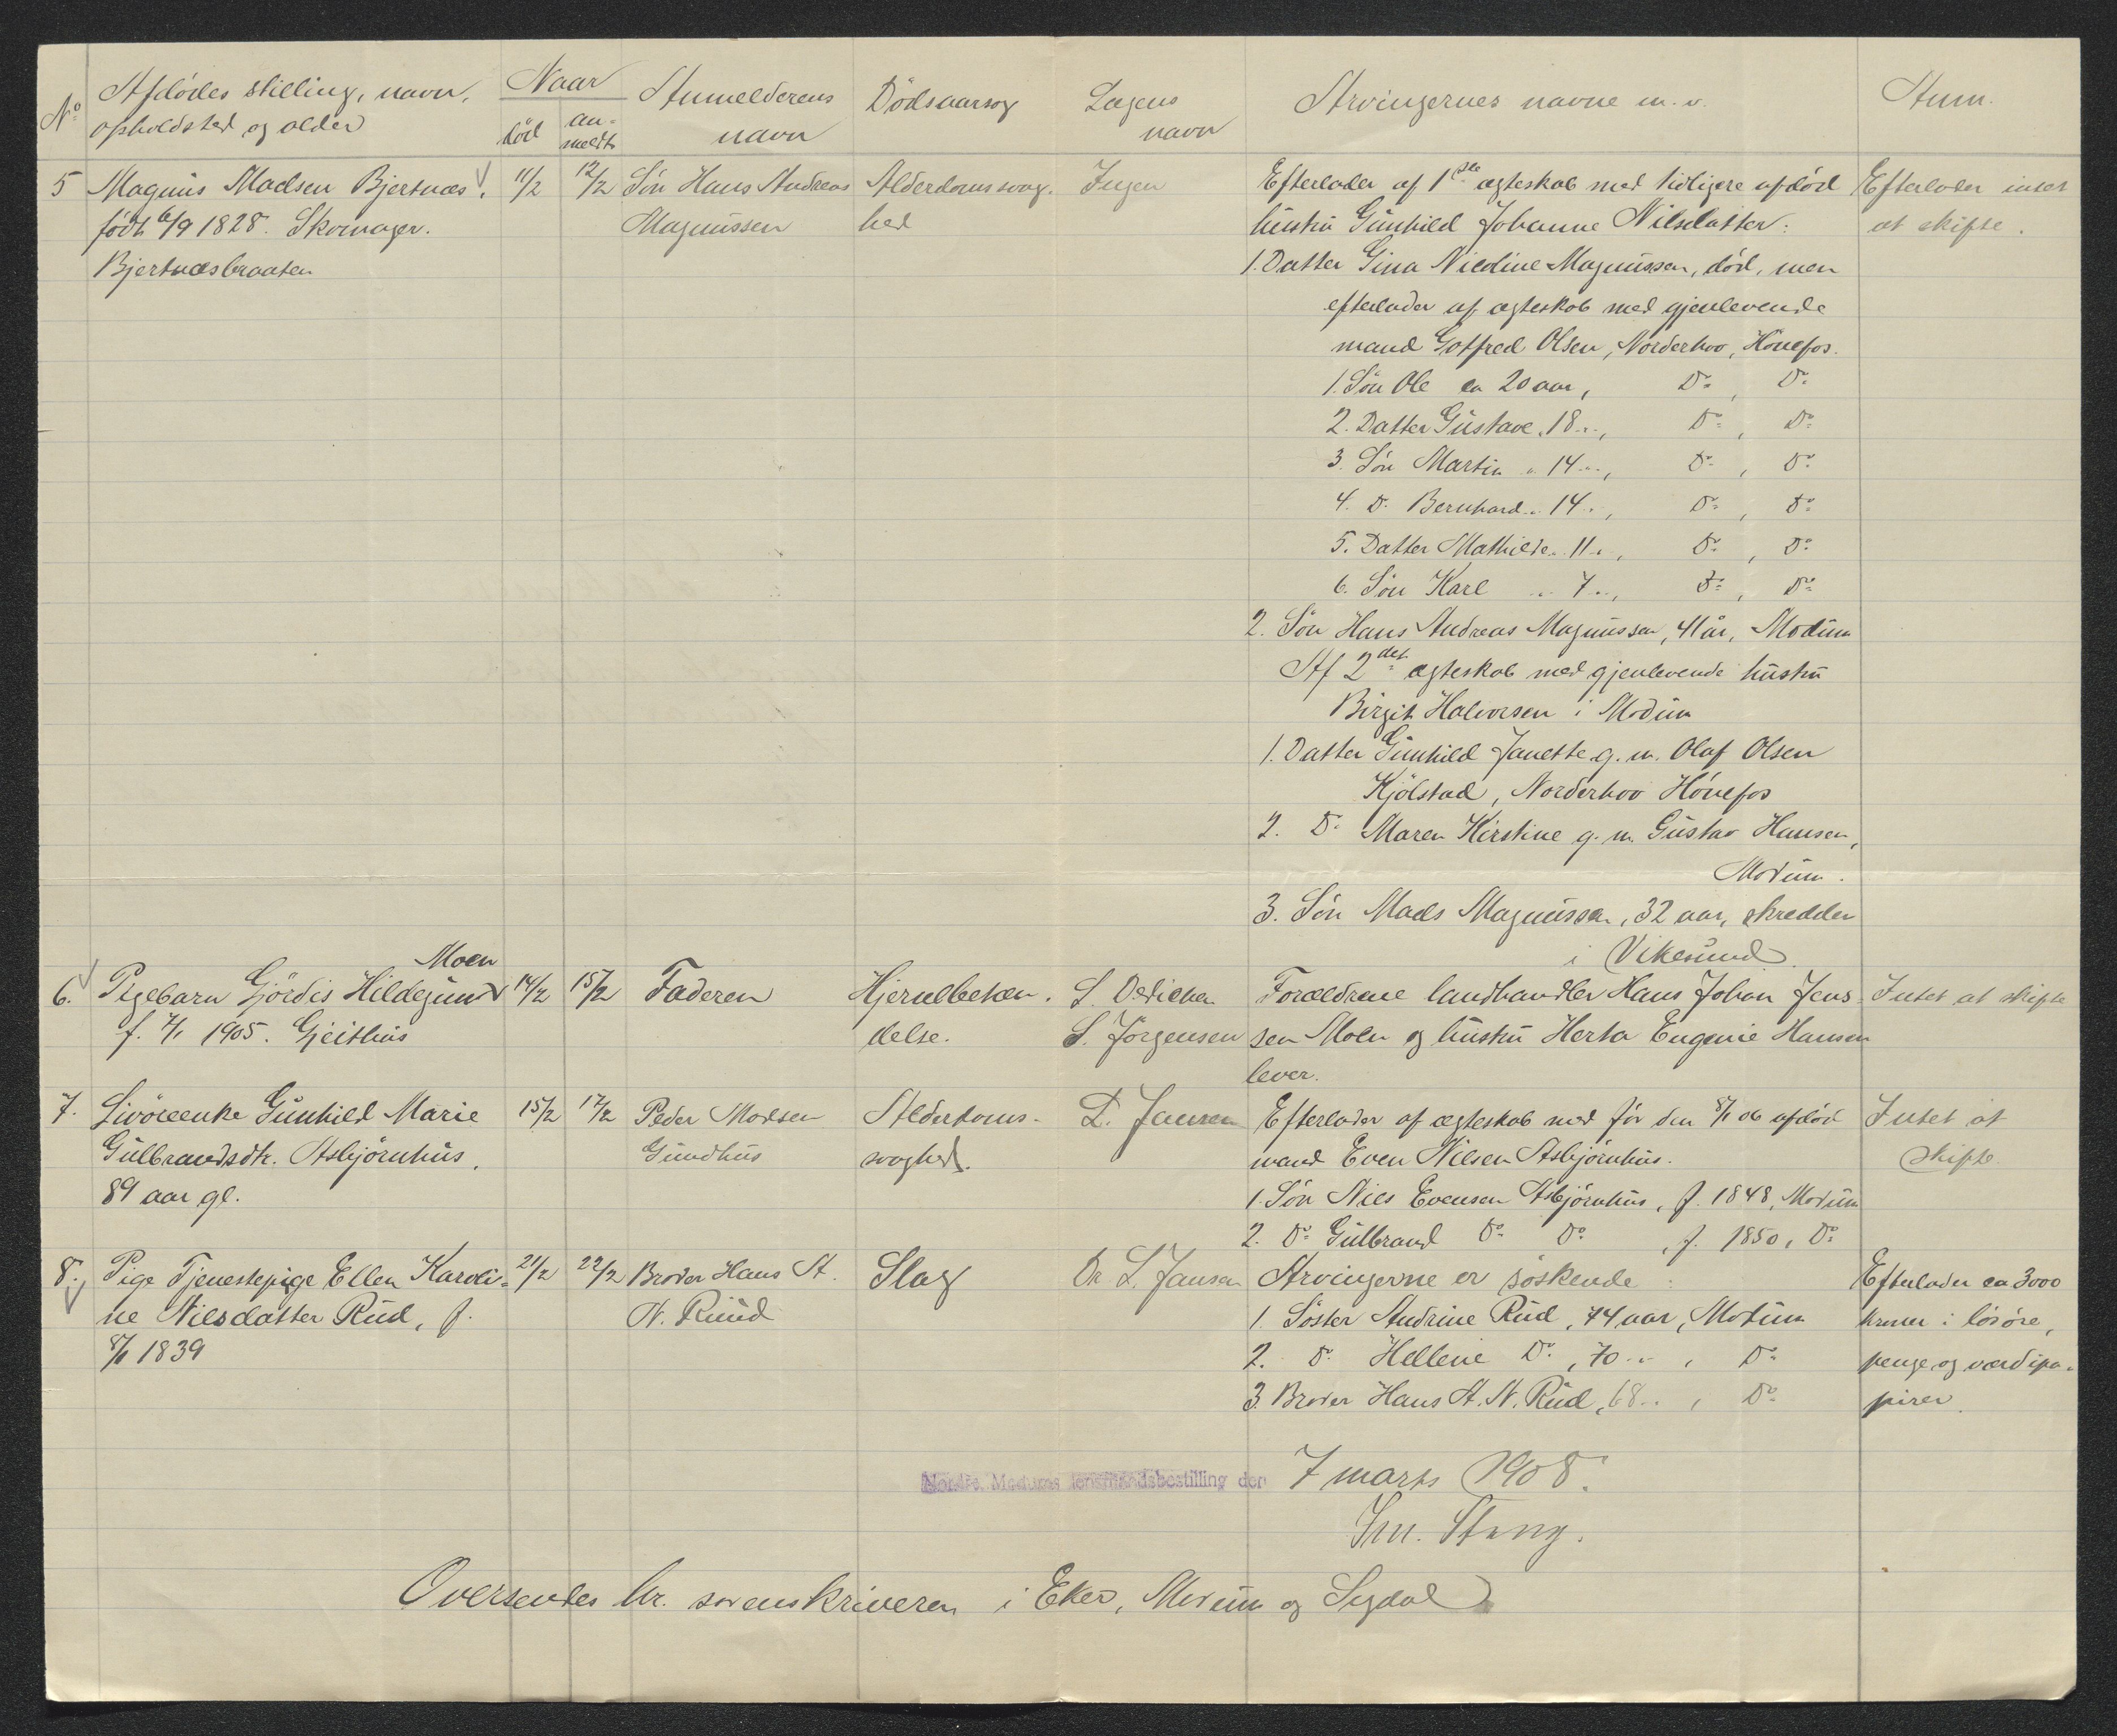 No Afdødes stilling, navn, opholdsted og alder
Naar
død
an-
meldt
Anmelderens
navn
Dödsaarsag
Lægens
navn
Arvingernes navne m. v.
Anm.
5 Magnus Madsen Bjertnæs.
født 6/9 1828. Skomager.
Bjertnæsbraaten
11/2
12/2
Søn Hans Andreas
Magnussen
Alderdomssvag-
hed
Ingen
Efterlader af 1ste ægteskab med tidligere afdød
hustru Gunhild Johanne Nilsdatter:
1. Datter Gina Nicoline Magnussen, død, men
efterlader af ægteskab med gjenlevende
mand Gotfred Olsen, Norderhov, Hönefos.
1. Søn Ole ca 20 aar, Do, Do
2. Datter Gustave " 18 ", Do, Do
3. Søn Martin " 14 ", Do, Do
4. Do Bernhard " 14 ", Do, Do
5. Datter Mathilde " 11 ", Do, Do
6. Søn Karl " 7 ", Do, Do
2. Søn Hans Andreas Magnussen, 41 år, Modum
Af 2det ægteskab med gjenlevende hustru
Birgit Halvorsen i Modum
1. Datter Gunhild Janette g. m. Olaf Olsen
Kjölstad, Norderhov Hönefos
2. Do Maren Kirstine g. m. Gustav Hansen,
Modum.
3. Søn Mads Magnussen, 32 aar, skredder
i Vikesund.
Efterlader intet
at skifte.
Moen
6. Pigebarn Gjördis Hildegund
f. 7/1 1905. Gjeithus
14/2
15/2
Faderen
Hjernebetæn-
delse.
S. Dedichen
S. Jörgensen
Forældrene landhandler Hans Johan Jens-
sen Moen og hustru Herta Eugenie Hansen
lever.
Intet at skifte
7. Livöreenke Gunhild Marie
Gulbrandsdtr. Asbjörnhus,
89 aar gl.
15/2
17/2
Peder Madsen
Gundhus
Alderdoms-
svaghed.
L. Jansen
Efterlader af ægteskab med før den 8/1 06 afdöd
mand Even Nilsen Asbjörnhus.
1. Søn Nils Evensen Asbjörnhus, f. 1848, Modum
2. Do Gulbrand Do Do, f. 1850, Do
Intet at
skifte
8. Pige Tjenestepige Ellen Karoli-
ne Nilsdatter Rud, f.
8/1 1839
21/2
22/2
Broder Hans A.
N. Ruud
Slag
Dr. L. Jansen
Arvingerne er söskende:
1. Söster Andrine Rud, 74 aar, Modum
2. Do Hellene Do, 70 ", Do
3. Broder Hans A. N. Rud, 68 ", Do
Efterlader ca 3000
kroner i lösöre,
penge og værdipa-
pirer.
Nordre Modums lensmandsbestilling den 7 marts 1908.
Stang.
Oversendes hr. sorenskriveren i Eker, Modum og Sigdal